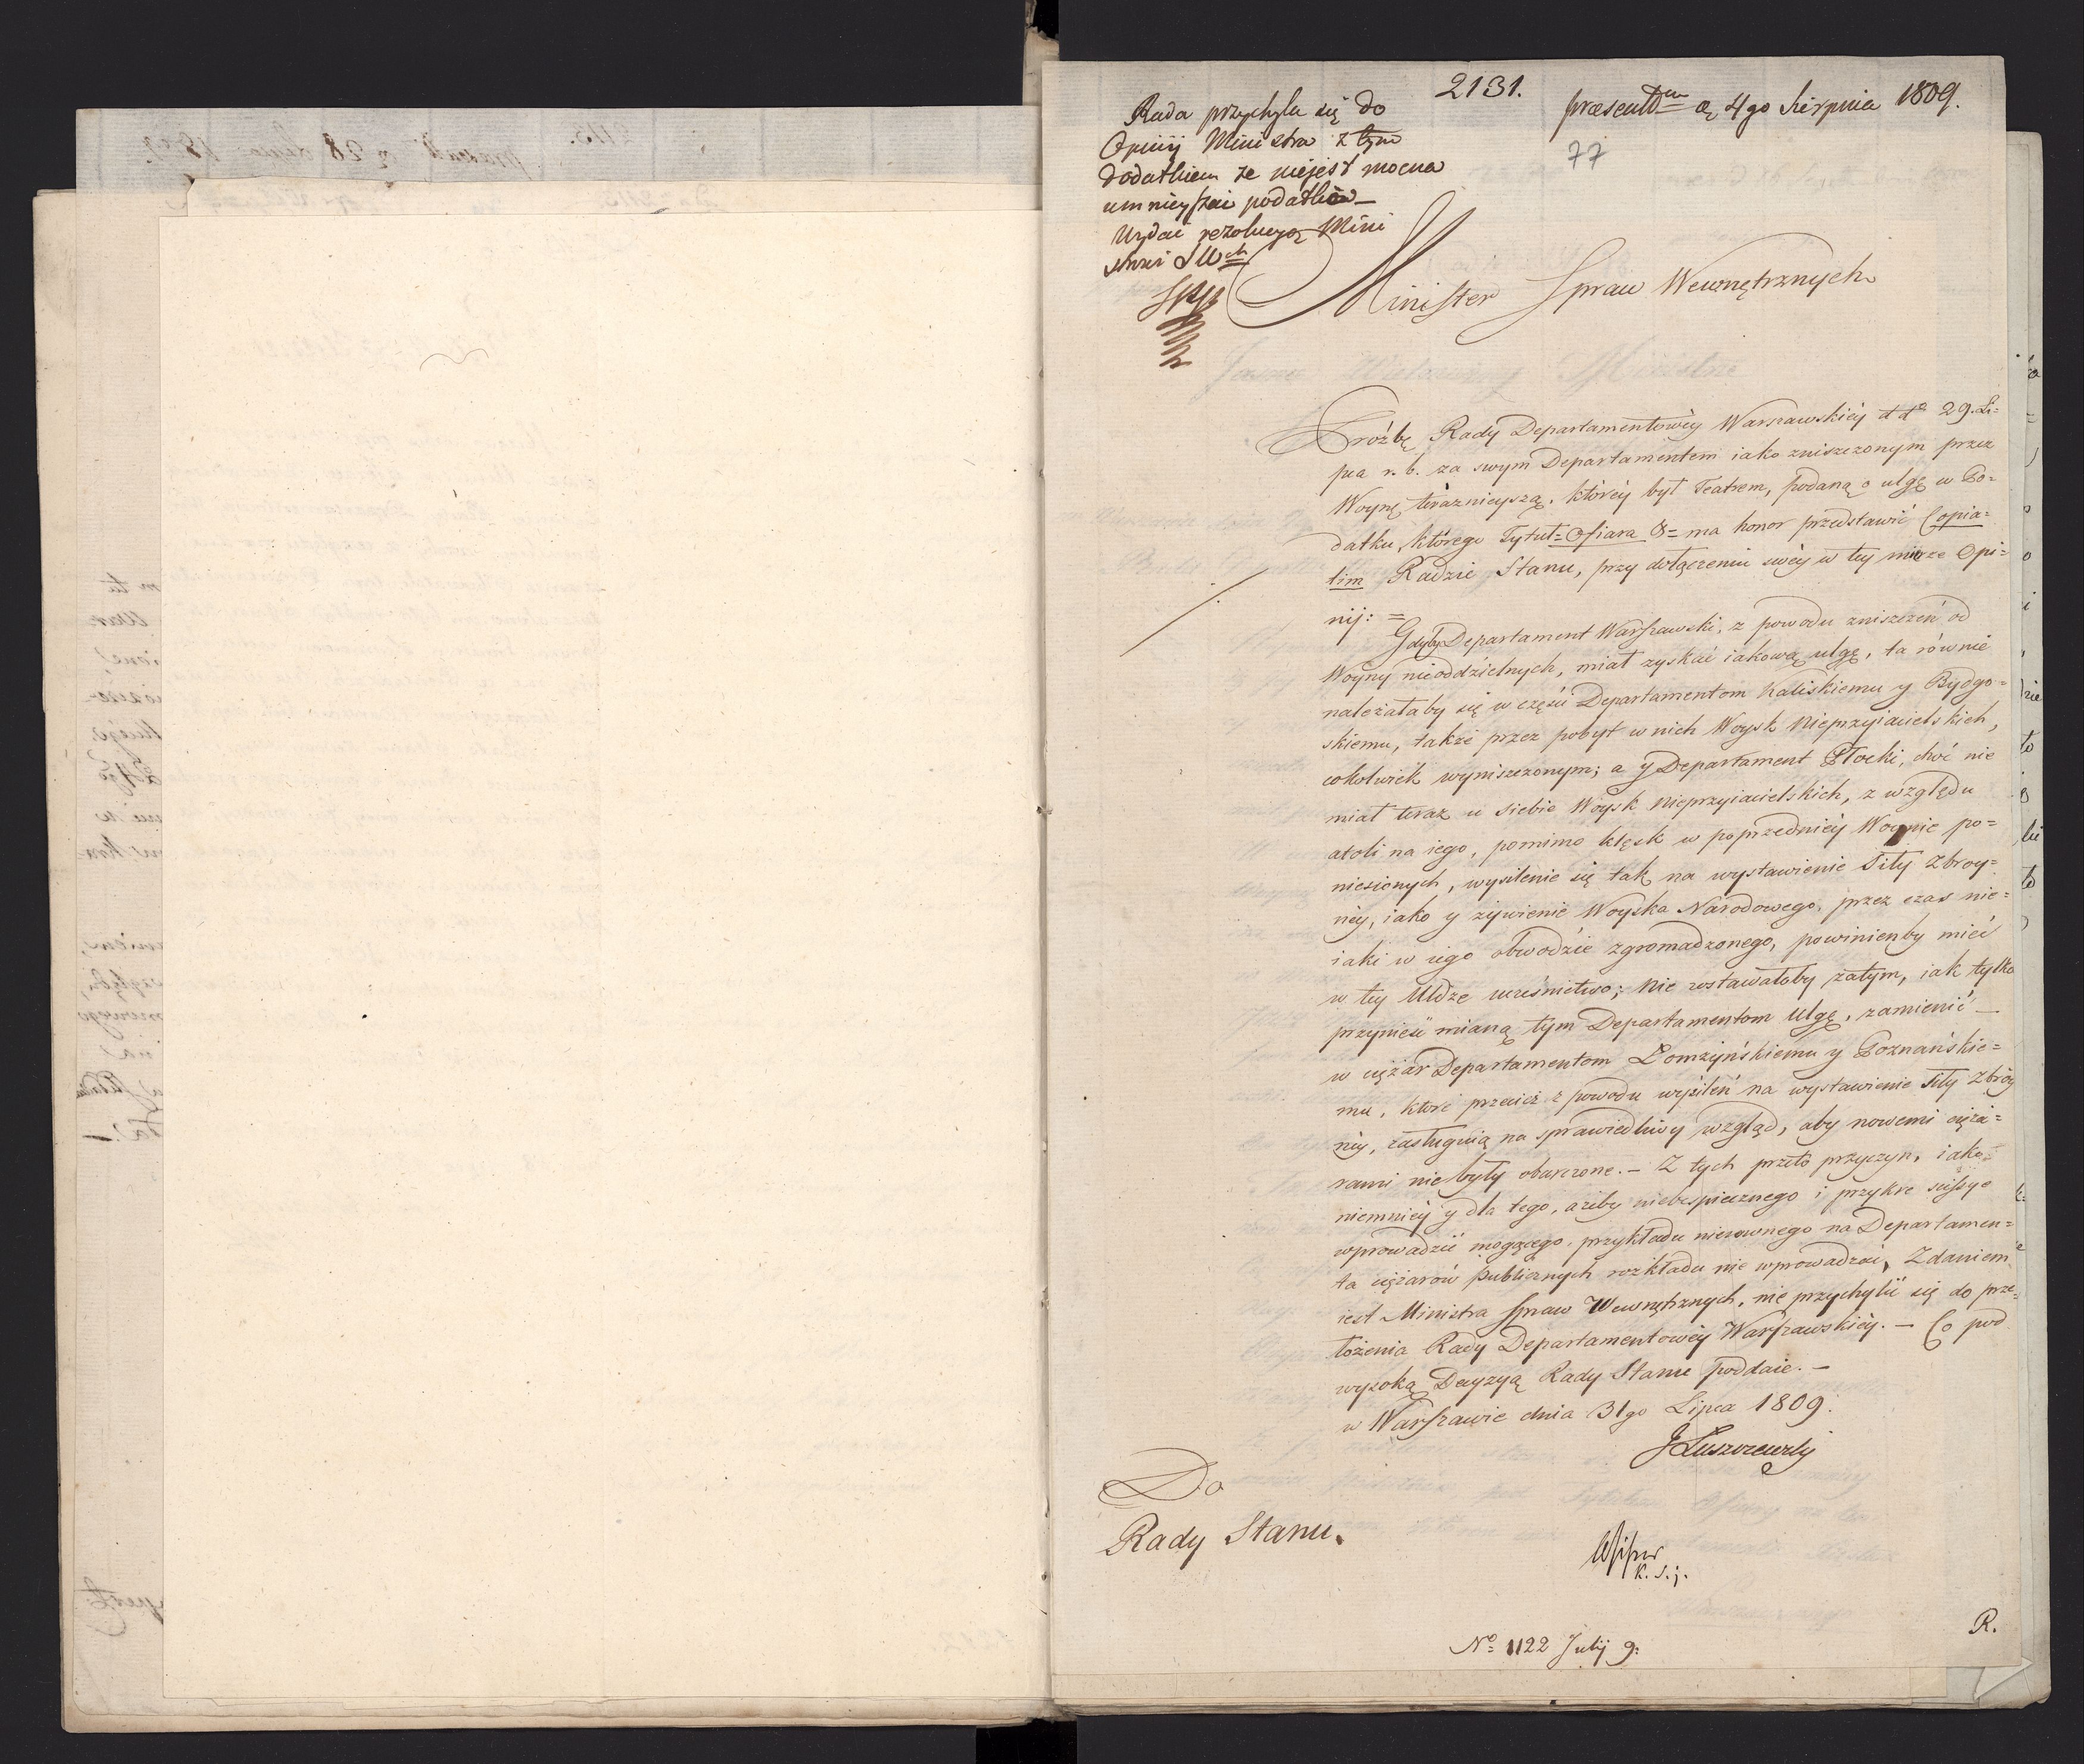 2131.
præsent. d. 4go Sierpnia 1809.
77
Rada przychyla się do
Opinij Ministra z tym
dodatkiem że niejest mocna
umnieyszać podatków –
Wydać rezolucyą Mini
strowi SW
Minister Spraw Wewnętrznych
Proźbę Rady Departamentowéy Warszawskiéy dd° 29. Li=
pca r. b. za swym Departamentem iako zniszczonym przez
Woynę teraznieyszą, któréy był Teatrem, podaną o ulgę w Po=
datku, którego Tytuł = Ofiara &= ma honor przedstawić Copia=
tim Radzie Stanu, przy dołączeniu swéy w téy mierze Opi=
nij: =
Gdyby Departament Warszawski, z powodu zniszczeń od
Woyny nieoddzielnych, miał zyskać iakową ulgę, ta równie
należałaby się w części Departamentom Kaliskiemu y Bydgo=
skiemu, także przez pobyt w nich Woysk Nieprzyiacielskich,
cokolwiek wyniszczonym; a y Departament Płocki, choć nie
miał teraz u siebie Woysk Nieprzyiacielskich, z względu
atoli na iego, pomimo klęsk w poprzedniéy Woynie po=
niesionych, wysilenie się tak na wystawienie Siły Zbroy=
néy, iako y żywienie Woyska Narodowego, przez czas nie=
iaki w iego obwodzie zgromadzonego, powinienby mieć
w téy Uldze ucześnictwo; nie zostawałoby zatym, iak tylko
przynieść mianą tym Departamentom Ulgę, zamienić –
w ciężar Departamentom Łomżyńskiemu y Poznańskie=
mu, które przecież z powodu wysileń na wystawienie Siły Zbroy
néy, zasługuią na sprawiedliwy wzgląd, aby nowemi cięża=
rami nie były obarczone. – Z tych przeto przyczyn, iako=
niemniéy y dla tego, ażeby niebespiecznego i przykre
wprowadzić mogącego, przykładu nierownego na Departamen=
ta ciężarów publicznych rozkładu nie wprowadzać, Zdaniem
iest Ministra Spraw Wewnętrznych, nie przychylić się do prze=
łożenia Rady Departamentowéy Warszawskiéy. – Co pod
wysoką Decyzyą Rady Stanu poddaie. –
w Warszawie dnia 31go Lipca 1809.
J Łuszczewski
Do
Rady Stanu.
K. S. j.
R.
N° 1122 Julij 9: